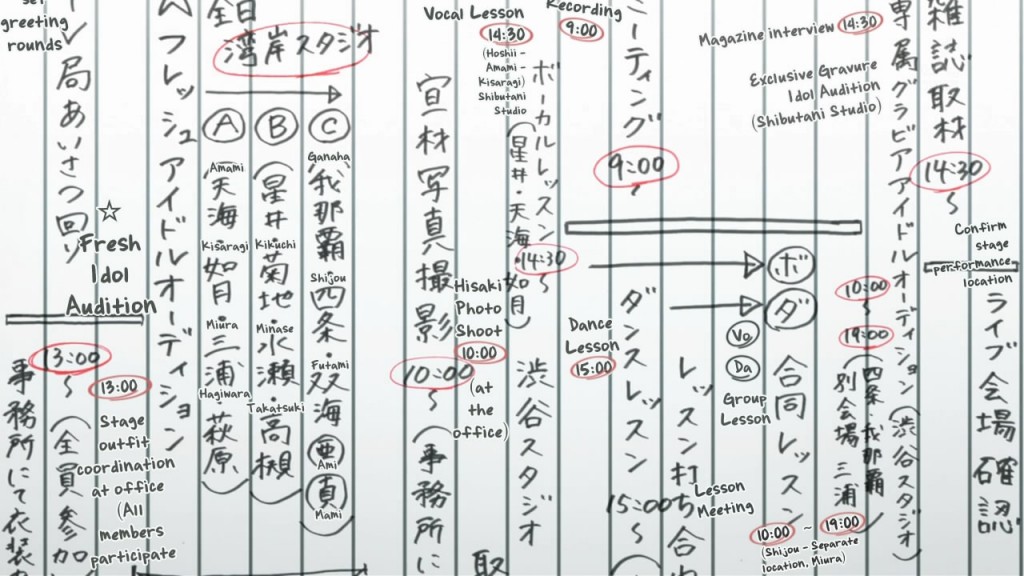 Magazine interview 14:30
Exclusive Gravure
Idol Audition
(Shibutani Studio)
Confirm
stage
performance
location
ライブ会場確認
雑誌取材 14:30〜
専属グラビアアイドルオーディション(渋谷スタジオ)
10:00〜19:00
(四条・我那覇)
別会場 三浦
10:00 ~ 19:00
(Shijou - Separate
location, Miura)
ボ
ダ
合同レッスン
Vo
Da
Group
Lesson
レッスン打ち合わ
Lesson
Meeting
ーティング 9:00〜
ダンスレッスン 15:00〜(
Dance
Lesson
15:00
Recording
9:00
Vocal Lesson
14:30
(Hoshii -
Amami -
Kisaragi)
Shibutani
Studio
ボーカルレッスン 14:30〜
(星井・天海・如月)
渋谷スタジオ
取
宣材写真撮影 10:00〜(事務所に
Hisaki
Photo
Shoot
10:00
(at
the
office)
全日
湾岸スタジオ
A
(天海・如月・三浦・萩原)
Amami
Kisaragi
Miura
Hagiwara
B
(星井・菊地・水瀬・高槻)
Kikuchi
Minase
Takatsuki
C
(我那覇・四条・双海亜真)
Ganaha
Shijou
Futami
Ami
Mami
フレッシュアイドルオーディション
☆
Fresh
Idol
Audition
局あいさつ回り
greeting
rounds
13:00〜(全員参加
事務所にて衣装
13:00
Stage
outfit
coordination
at office
(All
members
participate